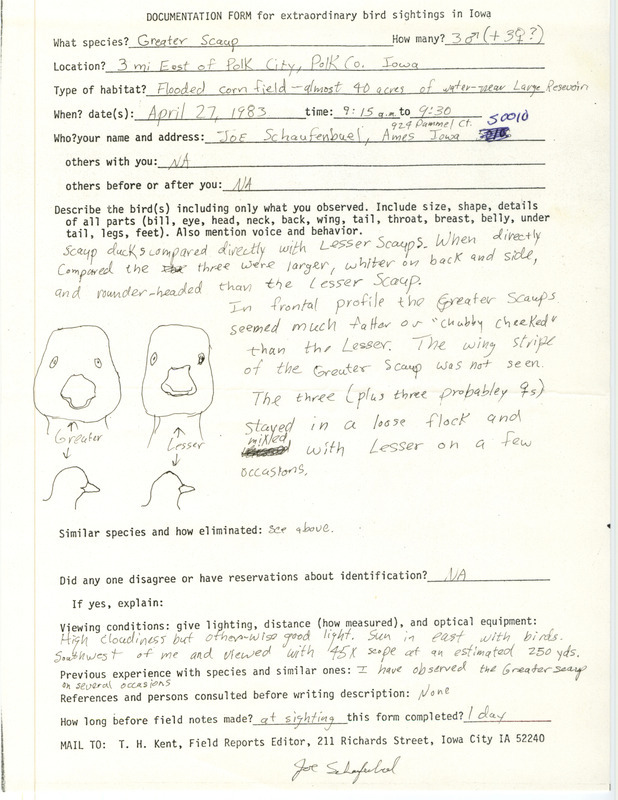 DOCUMENTATION FORM for extraordinary bird sightings in Iowa
What species? Greater Scaup How many? 3♂(+3♀?)
Location? 3 mi East of Polk City, Polk Co. Iowa
Type of habitat? Flooded corn field - almost 40 acres of water - near Large Resevoir
When? date(s): April 27, 1983 time: 9:15 a.m to 9:30
929 Pammel Ct. 50010
Who?your name and address: JOE Schaufenbuel, Ames Iowa
others with you: NA
others before or after you: NA
Describe the bird(s) including only what you observed. Include size, shape, details
of all parts (bill, eye, head, neck, back, wing, tail, throat, breast, belly, under
tail, legs, feet). Also mention voice and behavior.
Scaup ducks compared directly with Lesser Scaups. When directly
Compared the three were larger, whiter on back and side,
and rounder-headed than the Lesser Scaup.
In frontal profile the Greater Scaups
seemed much fatter or "chubby cheeked"
than the Lesser. The wing stripe
of the Greater Scaup was not seen.
The three (plus three probabley ♀s)
Stayed in a loose flock and
mixed with Lesser on a few
occasions.
Greater
Lesser
Similar species and how eliminated: see above.
Did any one disagree or have reservations about identification? NA
If yes, explain:
Viewing conditions: give lighting, distance (how measured), and optical equipment:
High Cloudiness but other-wise good light. Sun in east with birds.
Southwest of me and viewed with 45X scope at an estimated 250 yds.
Previous experience with species and similar ones: I have observed the Greater scaup
on several occasions
References and persons consulted before writing description: None
How long before field notes made? at sighting this form completed? 1 day
MAIL TO: T. H. Kent, Field Reports Editor, 211 Richards Street, Iowa City IA 52240
Joe Schaufenbuel